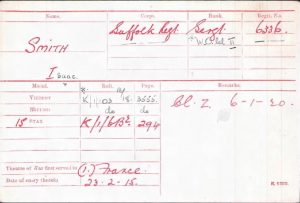 Name. Corps. Rank. Regtl. No.
Suffolk Regt Sergt 6336.
SMITH
W.O.Cl. II
Isaac.
Medal. Roll. Page. Remarks.
VICTORY
BRITISH do do
15 STAR K/1/6B2. 294
Cl. Z 6-1-20.
Theatre of War first served in (1.) France.
Date of entry therein 23-2-15.